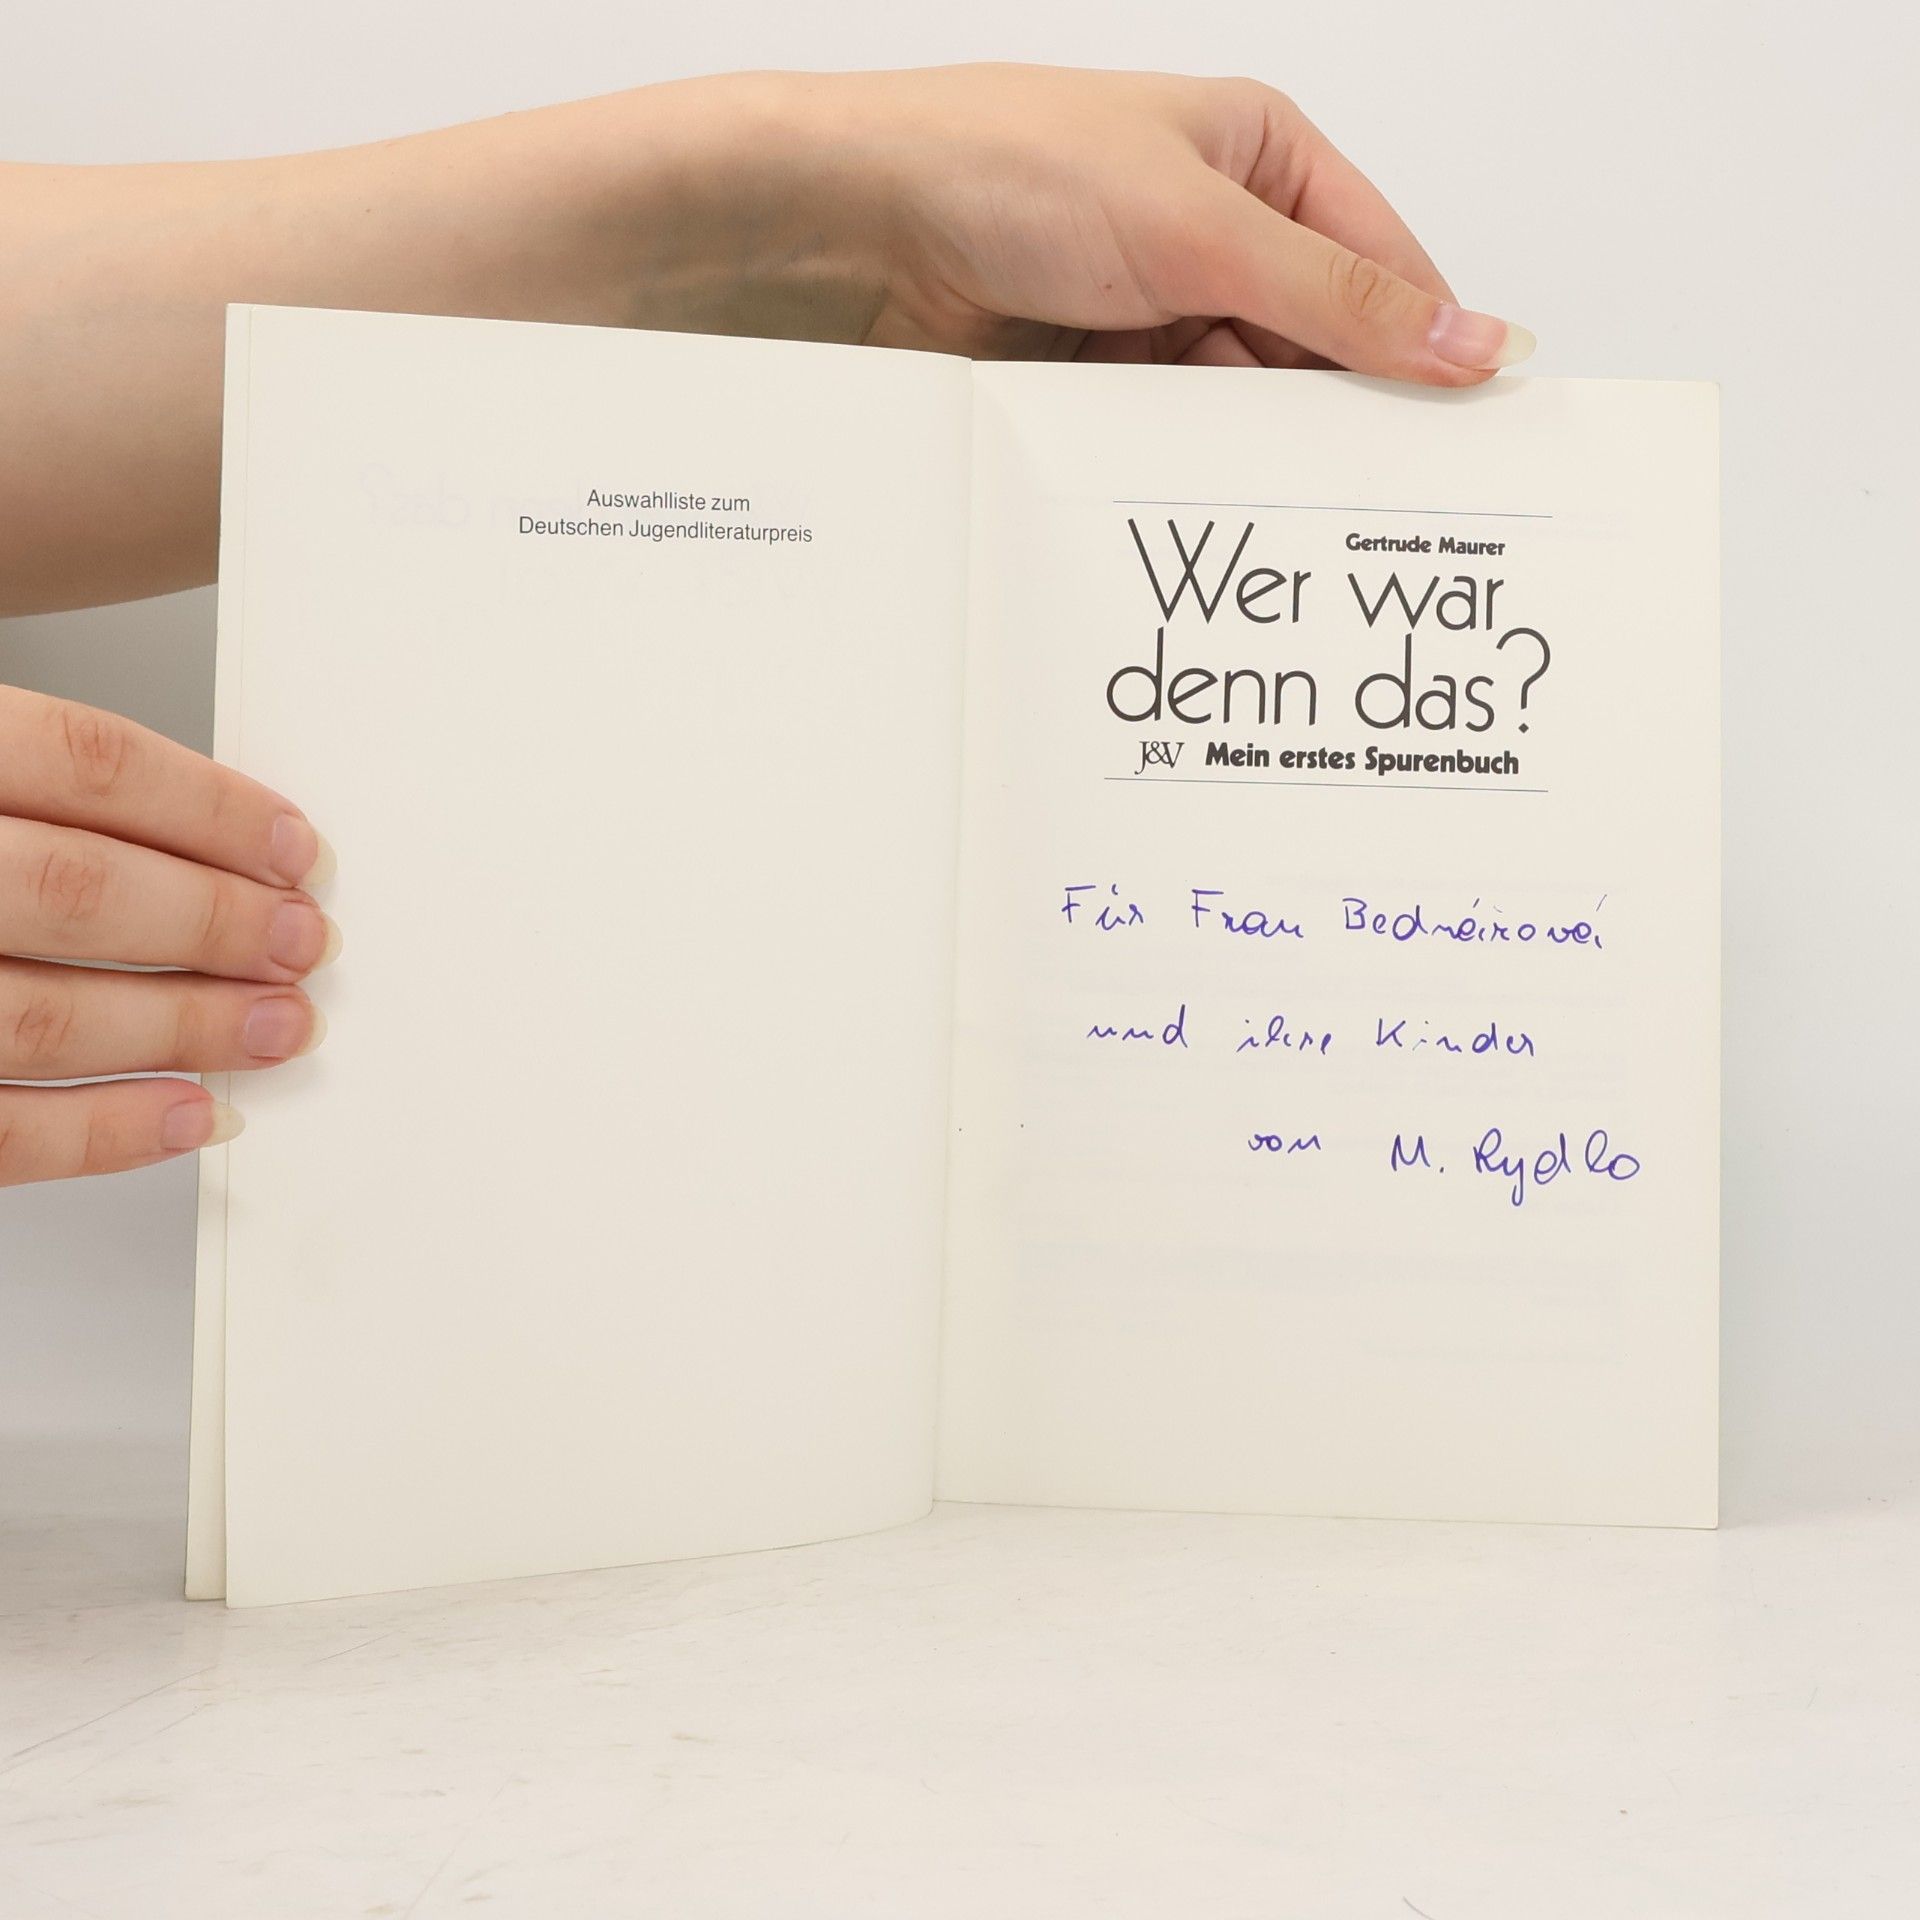 Auswahlliste zum
Deutschen Jugendliteraturpreis
Gertrude Maurer
Wer war
denn das?
J&V Mein erstes Spurenbuch
Für Frau
und ihre Kinder
von M. Rydlo